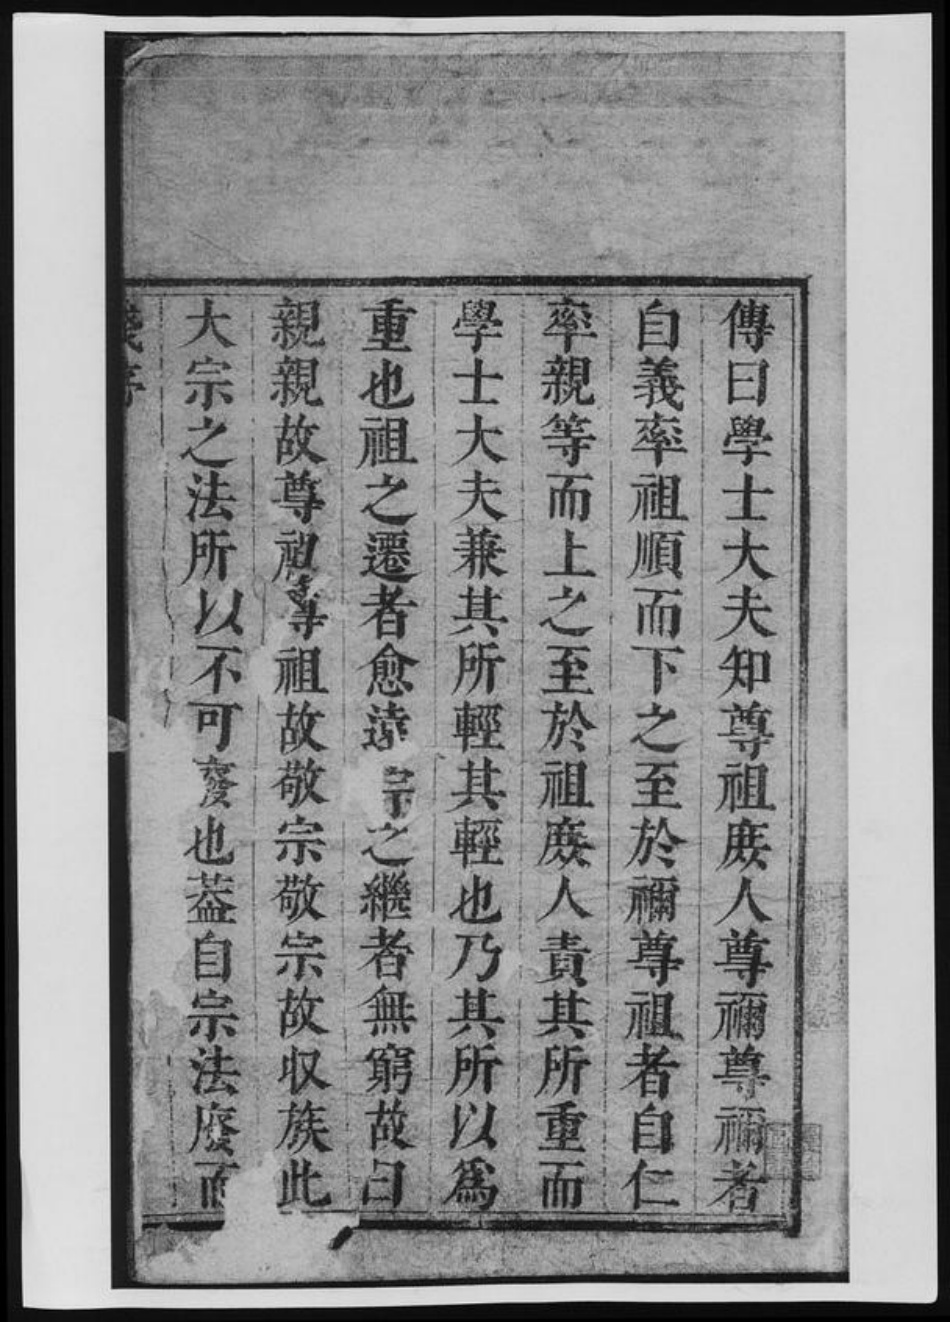 傳曰學士大夫知尊祖庶人尊禰尊禰者
自義率祖順而下之至於禰尊祖者自仁
率親等而上之至於祖庶人責其所重而
學士大夫兼其所輕其輕也乃其所以爲
重也祖之遷者愈遠宗之繼者無窮故曰
親親故尊祖尊祖故敬宗敬宗故收族此
大宗之法所以不可廢也蓋自宗法廢而